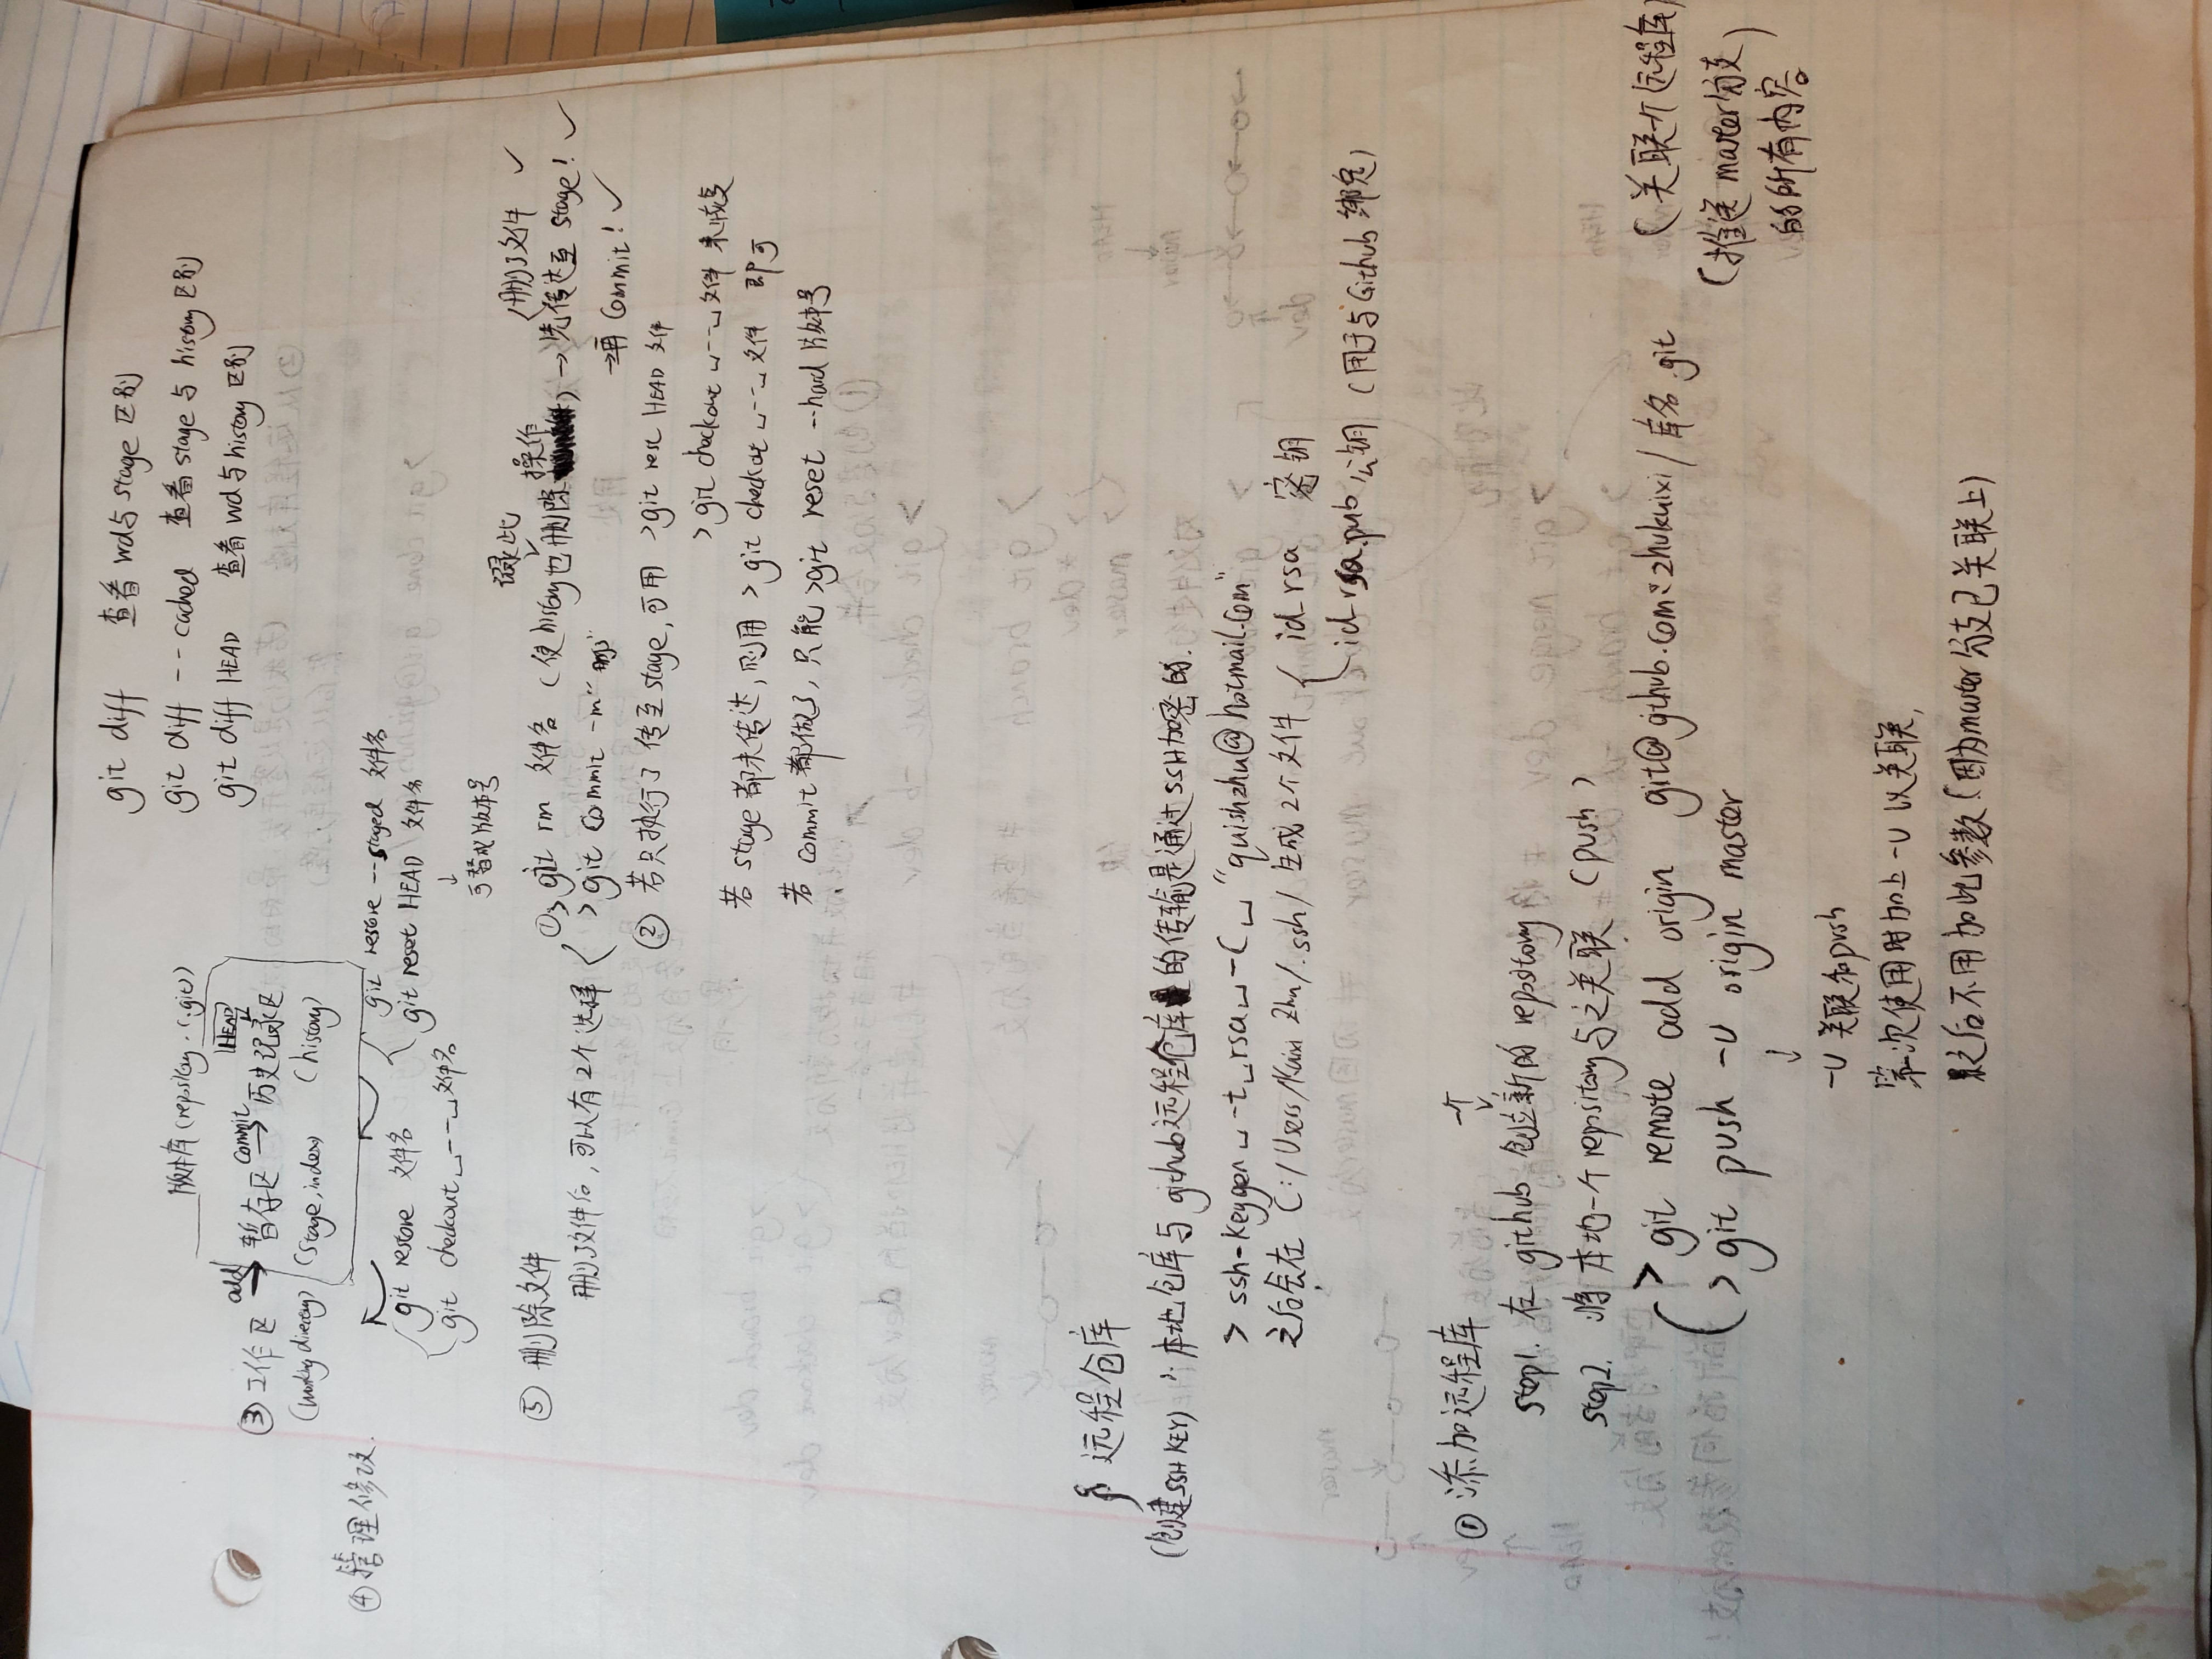 git diff 查看 wd与 stage 区别
git diff --cached 查看 stage 与 history 区别
git diff HEAD 查看 wd 与 history 区别
版本库 (repository. (.git))
HEAD
add commit
③ 工作区 → 暂存区 → 历史记录区
(working directory) (stage, index) (history)
④ 管理修改.
git restore --staged 文件名
git restore 文件名 git reset HEAD 文件名
git checkout␣--␣文件名 ↓
可替成版本号
⑤ 删除文件
记录此 操作 (删了文件 ✓
删了文件后, 可以有2个选择 ① > git rm 文件名 (使history也删除) → 先传达至 stage! ✓
> git commit -m"删了" → 再 Commit! ✓
② 若只执行了传至stage, 可用 >git reset HEAD 文件
> git checkout␣--␣文件 来恢复
若 stage 都未传达, 则用 > git checkout␣--␣文件 即可
若 commit 都做了, 只能 >git reset --hard 版本号
§ 远程仓库
(创建SSH KEY) ∵ 本地仓库与 github远程仓库的传输是通过SSH加密的.
> ssh-keygen␣-t␣rsa␣-C␣"quishzhu@hotmail.com"
之后会在 C:/Users/Kuixi Zhu/.ssh/ 生成 2个文件 id_rsa 密钥
id_rsa.pub 公钥 (用于与Github 绑定)
① 添加远程库 一个
step1. 在 github 创建新的 repository
step2. 将 本地一个 repository与之关联 (push)
> git remote add origin git@github.com:zhukuixi/库名.git (关联一个远程库)
> git push -u origin master (推送 master分支
的所有内容)
↓
-u 关联和push
第一次使用时加上 -u 以关联,
之后不用加此参数 (因为master 分支已关联上)